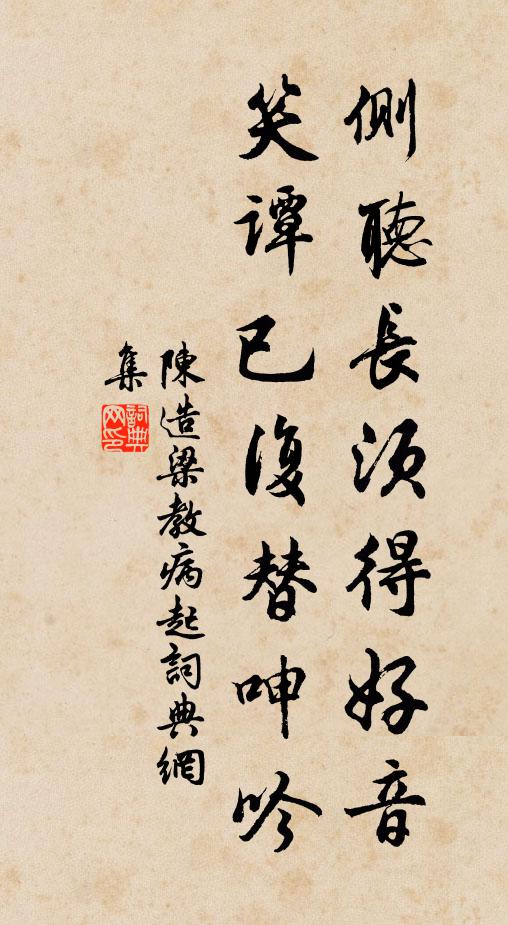 側聽長須得好音
笑譚已復替呻吟
陳造梁教病起詞典網
集
詞典网印